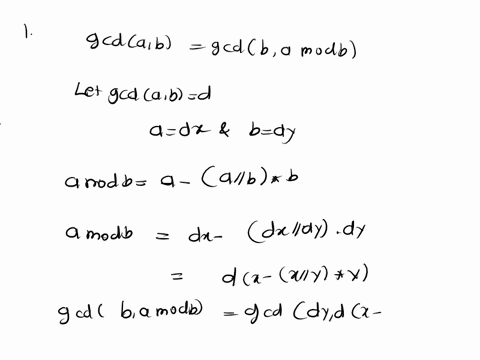 1.
gcd(a,b) = gcd(b, a mod b)
Let gcd(a,b)=d
a=dx & b=dy
a mod b = a - (a//b) * b
a mod b = dx - (dx//dy) . dy
= d(x - (x//y) * y)
gcd( b, a mod b) = gcd (dy, d (x -